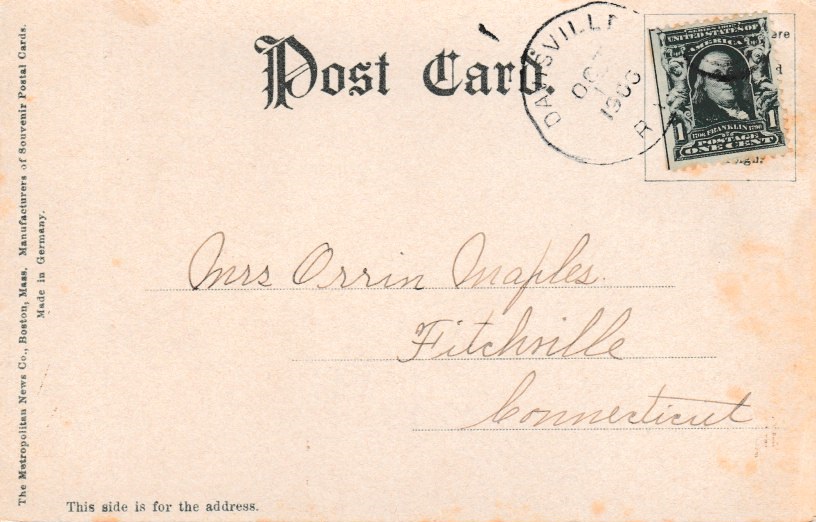 The Metropolitan News Co., Boston, Mass. Manufacturers of Souvenir Postal Cards.
Made in Germany.
Post Card.
DAVISVILLE
OCT
1906
R.I.
UNITED STATES OF
AMERICA
1 1706 FRANKLIN 1790 1
POSTAGE
ONE CENT
Mrs Orrin Maples.
Fitchville
Connecticut
This side is for the address.